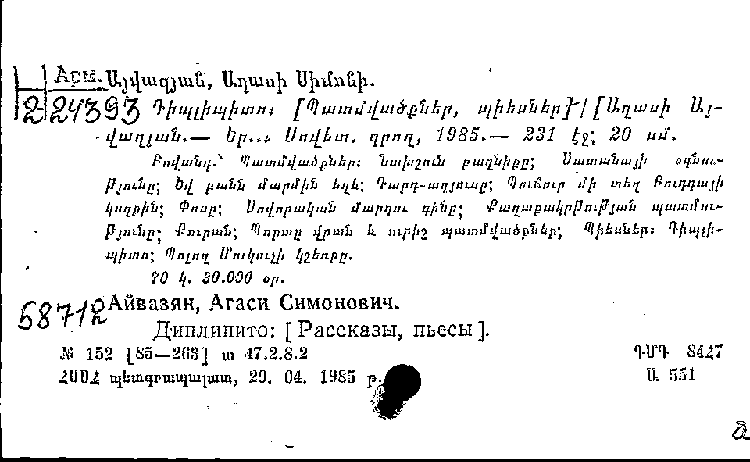 Арм. Այվազյան, Աղասի Սիմոնի.
2 24393 Դիպլիպիտո: [Պատմվածքներ, պիեսներ] / [Աղասի Այ-
վազյան.— Եր., Սովետ. գրող, 1985.— 231 էջ; 20 սմ.
Բովանդ.՝ Պատմվածքներ: Նախշուն բաղնիքը; Սատանայի օգնու-
թյունը; Եվ բանն մարմին եղև; Դարդ-աղյուսը; մի տեղ Բուդդայի
կողքին; Փոսը; Սովորական մարդու գինը; Քաղաքակրթության պատմու-
թյունը; Քուրան; վրան և ուրիշ պատմվածքներ; Պիեսներ: Դիպլի-
պիտո; Պոլոզ Մուկուչի կշեռքը.
70 կ. 30.000 օր.
58712 Айвазян, Агаси Симонович.
Диплипито: [Рассказы, пьесы].
№ 152 [85—263] տ 47.2.8.2 ԴՄԴ 84Հ7
ՀՍՍՀ պետգրապալատ, 29. 04. 1985 թ. Ա 551